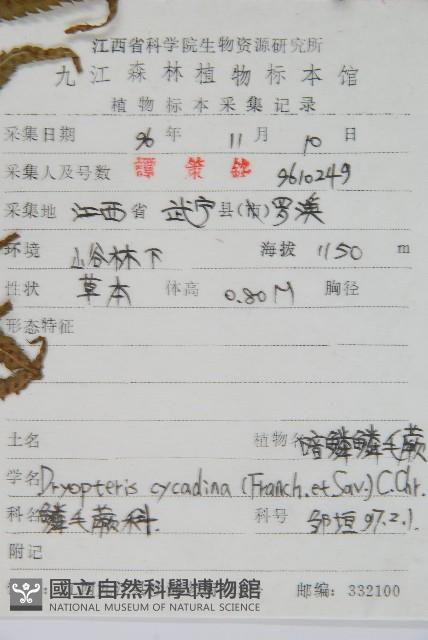 江西省科学院生物资源研究所
九江森林植物标本馆
植物标本采集记录
采集日期 96 年 11 月 10 日
采集人及号数 譚策銘 9610249
采集地 江西 省 武宁 县(市) 罗溪
环境 山谷林下 海拔 1150 m
性状 草本 体高 0.80M 胸径
形态特征
土名 植物名 暗鳞鳞毛蕨
学名 Dryopteris cycadina (Franch. et Sav.) C. Chr.
科名 鳞毛蕨科 科号 邹垣 97.2.1.
附记
邮编: 332100
國立自然科學博物館
NATIONAL MUSEUM OF NATURAL SCIENCE